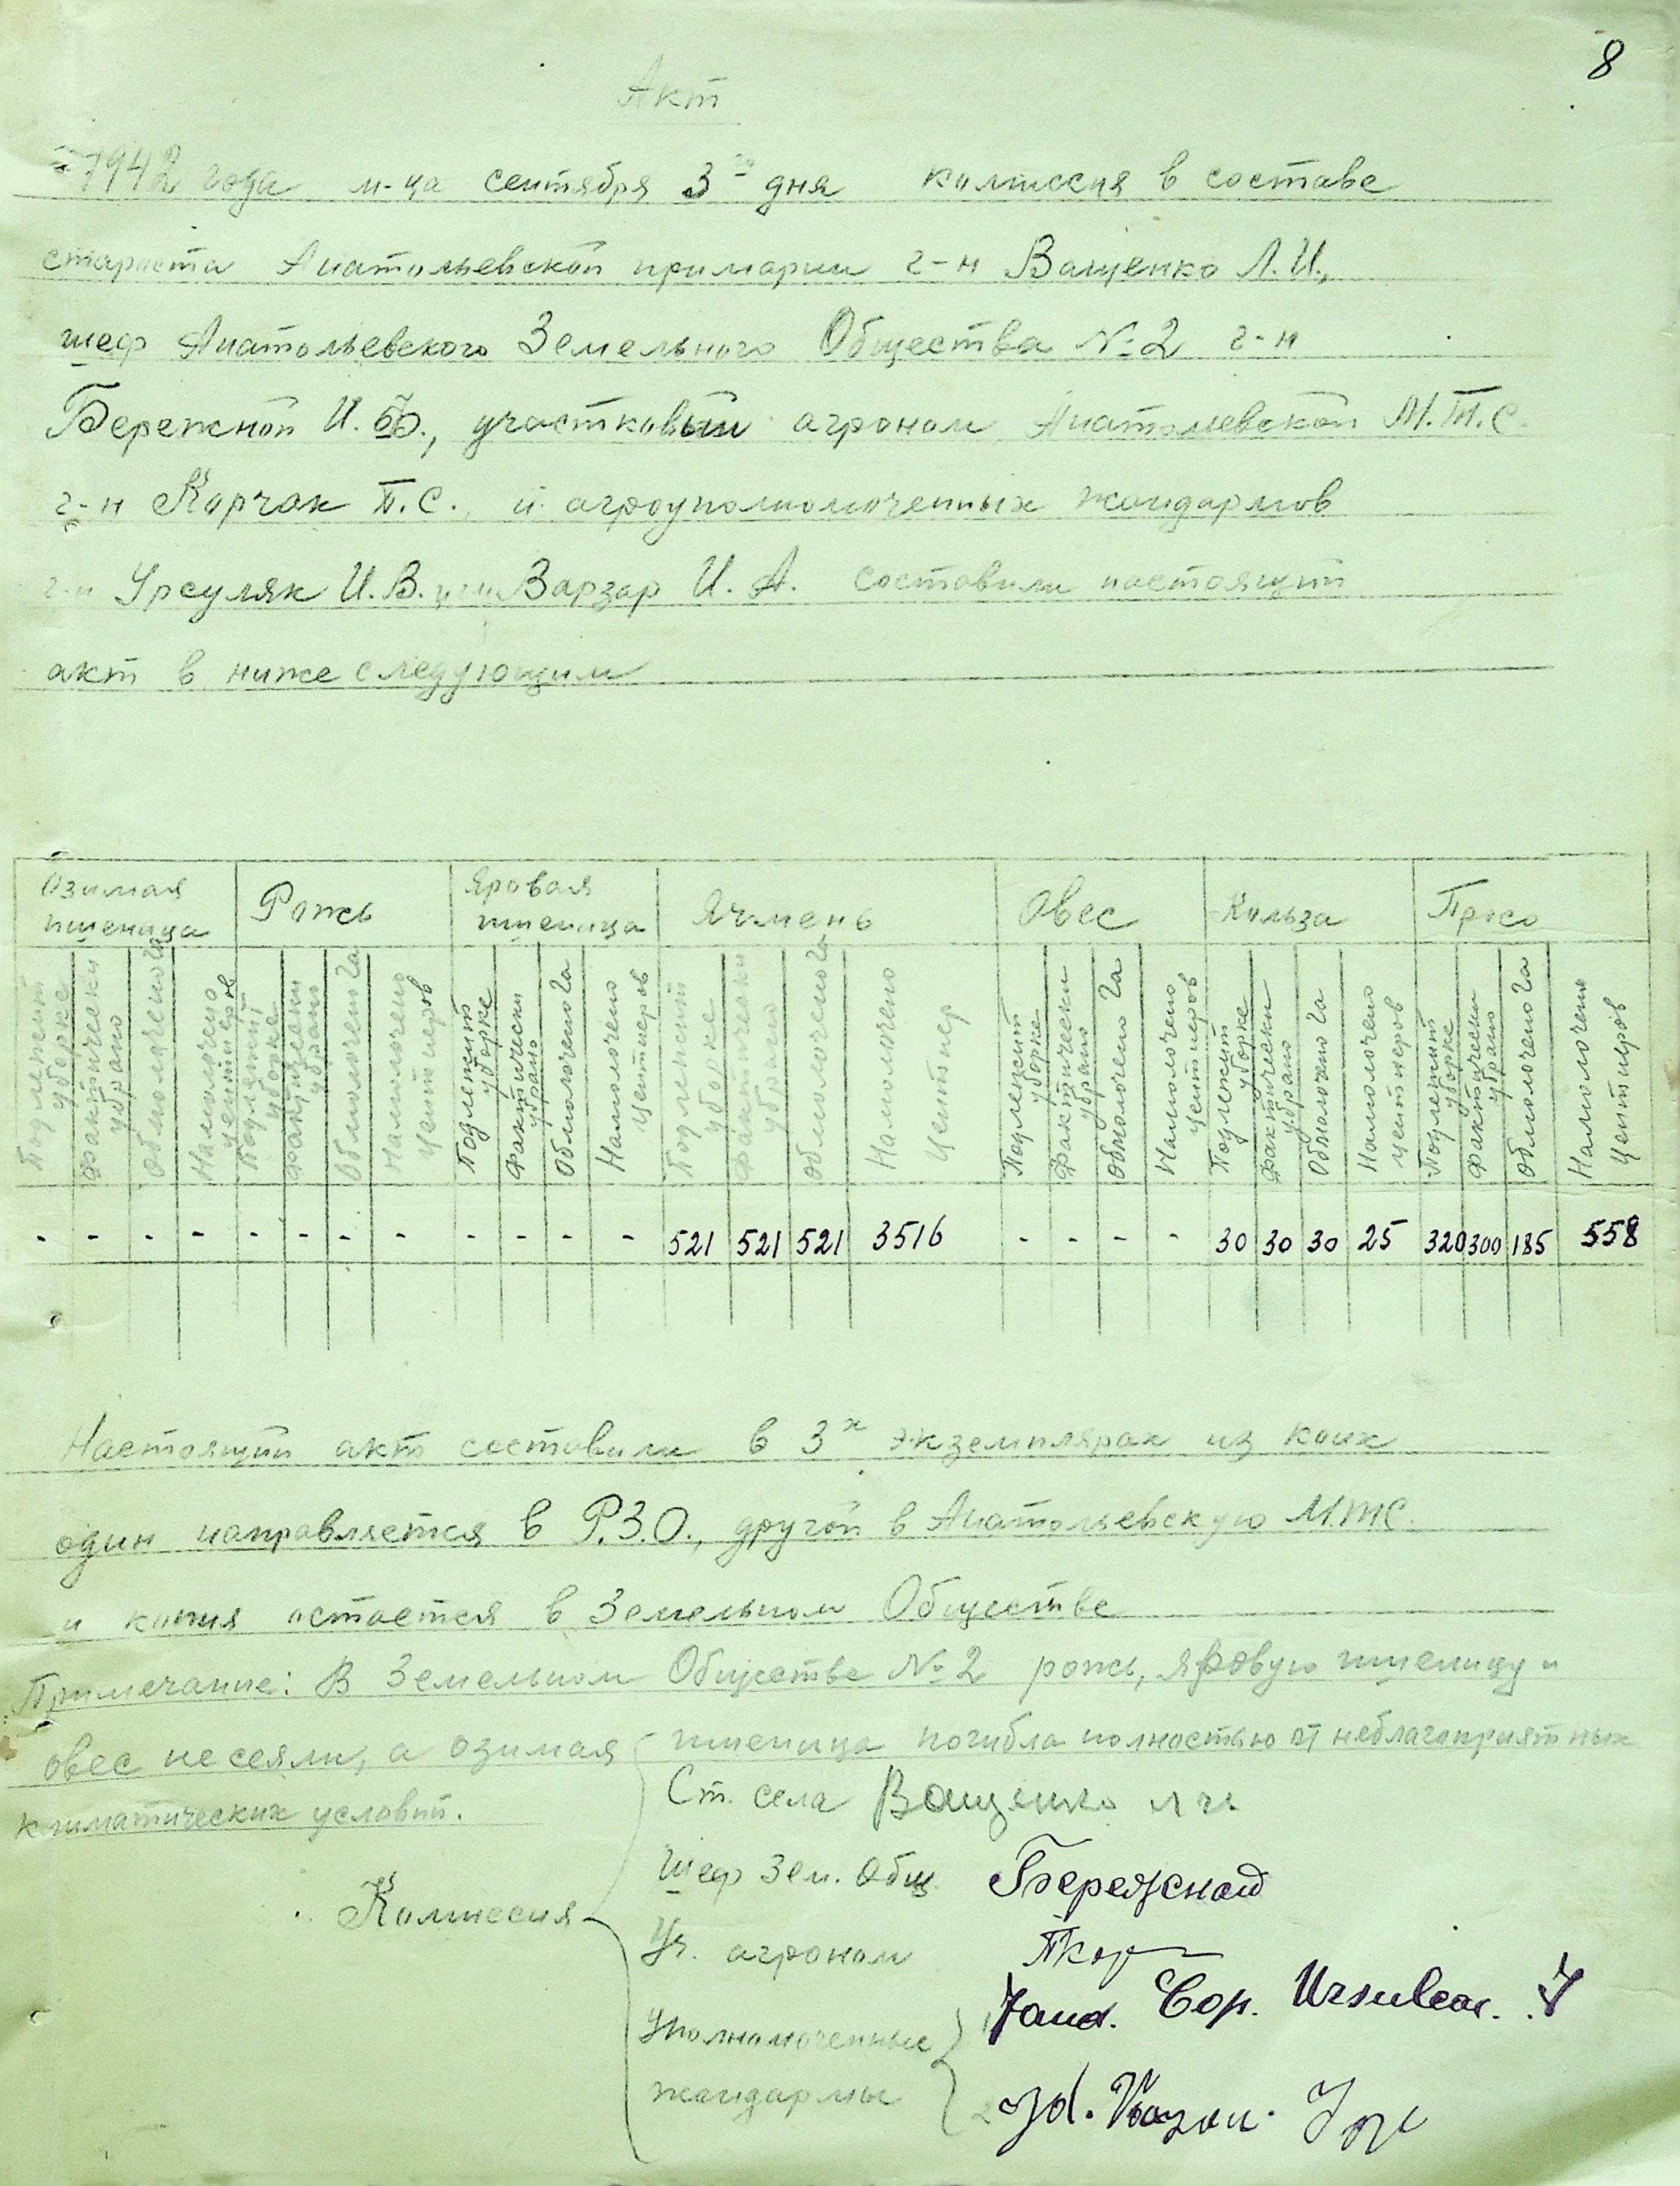 8
Акт
1942 года м-ца сентября 3го дня комиссия в составе
староста Анатольевской примарии г-н Ващенко Л.И.,
шеф Анатольевского Земельного Общества №2 г-н
Бережной И. Ф., участковый агроном Анатолевской М.Т.С.
г-н Корчак П.С., и агроуполномоченных жандармов
г-н Урсуляк И.В. и г-н Варзар И. А. составили настоящий
акт в ниже следующим
Озимая пшеница Рожь Яровая пшеница Ячмень Овес Кольза Просо
Подлежит уборке Фактически убрано Обмолочено га Намолочено центнеров Подлежит уборке Фактически убрано Обмолочено га Намолочено центнеров Подлежит уборке Фактически убрано Обмолочено га Намолочено центнеров Подлежит уборке Фактически убрано Обмолочено га Намолочено Центнер Подлежит уборке Фактически убрано Обмолочено га Намолочено центнеров Подлежит уборке Фактически убрано Обмолочено га Намолочено центнеров Подлежит уборке Фактически убрано Обмолочено га Намолочено центнеров
- - - - - - - - - - - - 521 521 521 3516 - - - - 30 30 30 25 320 300 185 558
Настоящий акт составили в 3х экземплярах из коих
один направляется в Р.З.О., другой в Анатольевскую М.ТС.
и копия остается в Земельном Обществе
Примечание: В Земельном Обществе №2 рожь, яровую пшеницу и
овес не сеяли, а озимая пшеница погибла полностью от неблагоприятных
климатических условий.
Комиссия
Ст. села Ващенко
Шеф Зем. Общ. Бережной
Уч. агроном
Уполномоченные
жандармы
1 Jand. Cop. Ursuleac. I
2